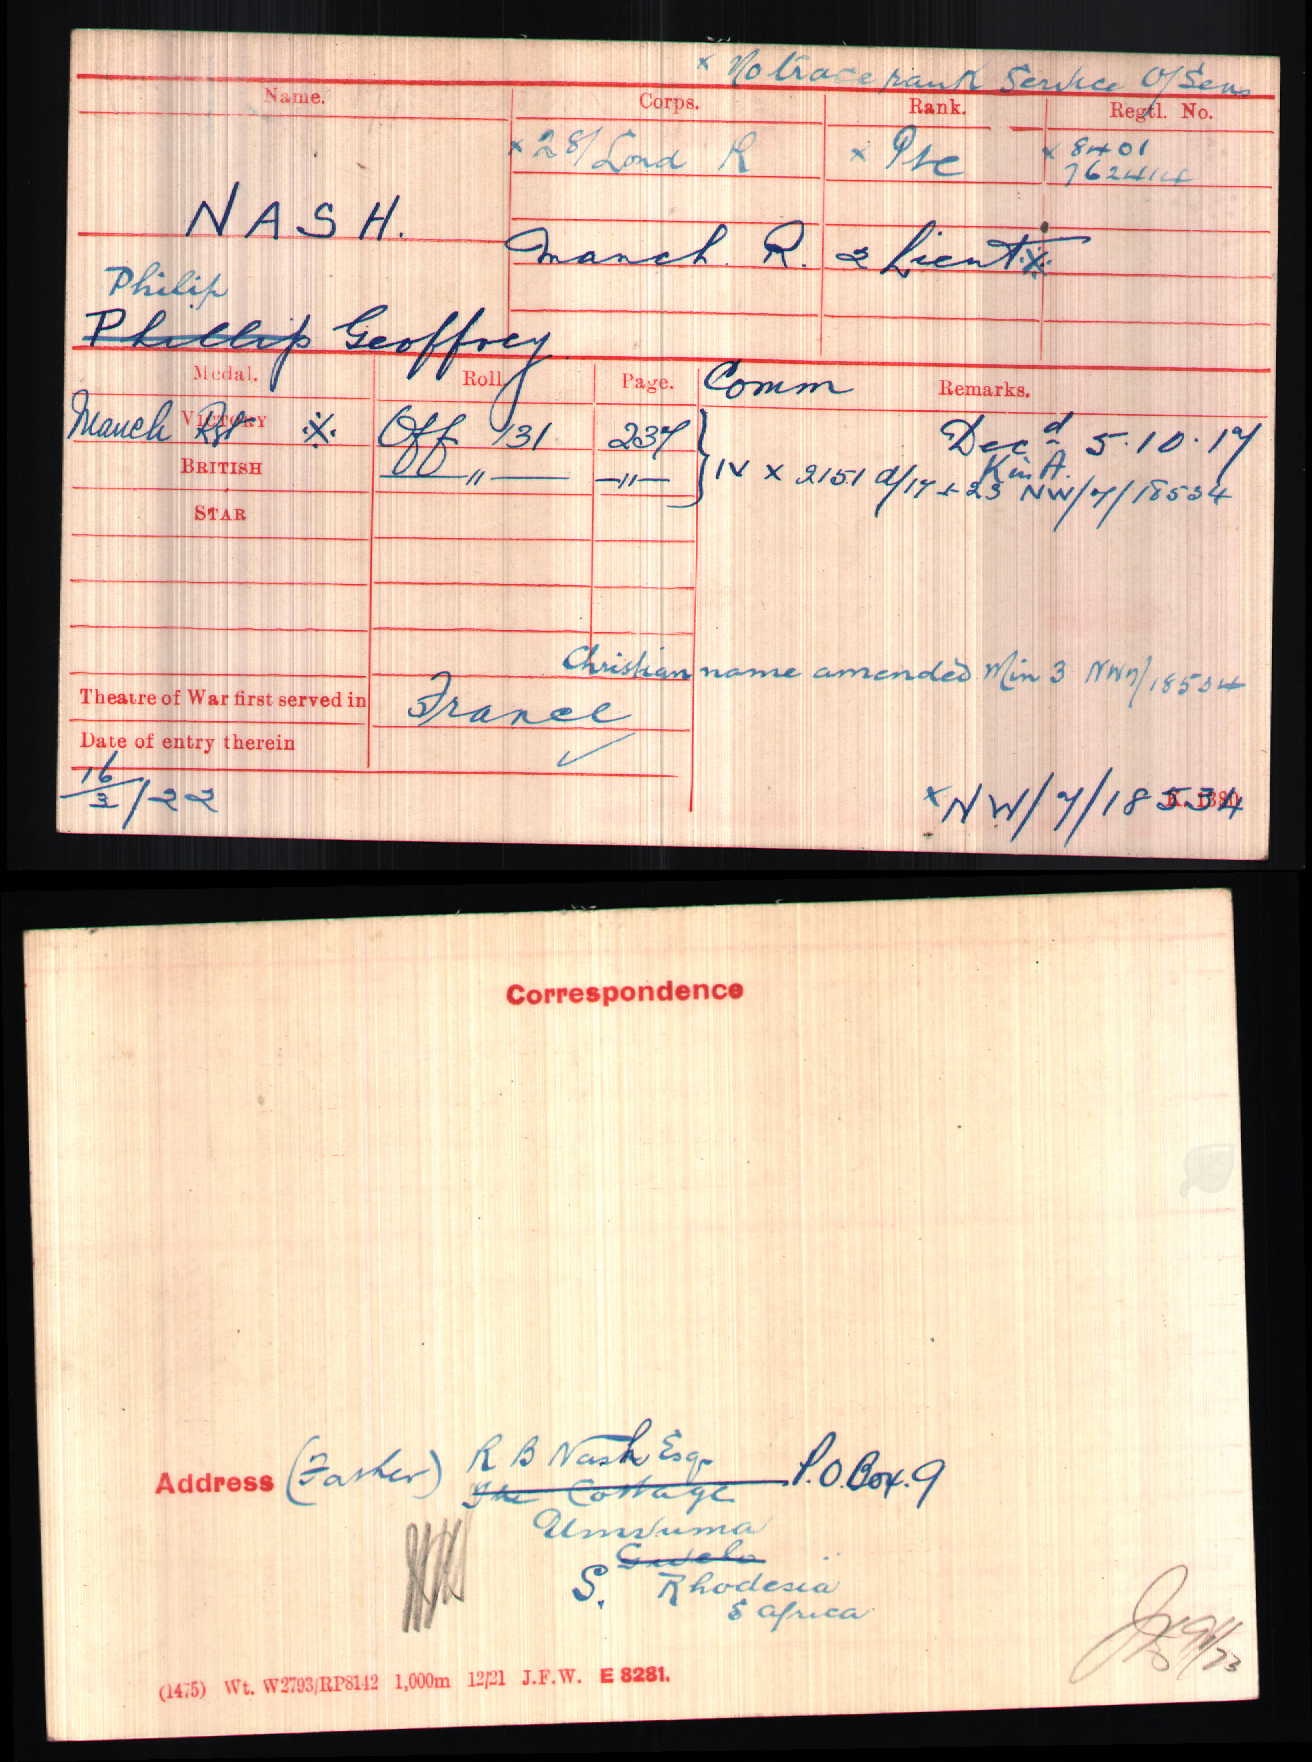 x No trace rank Service O/Seas
Name. Corps. Rank. Regtl. No.
x 28/Lond R x Pte x 8401
762414
NASH.
Manch. R. 2 Lieut x
Philip
Phillip Geoffrey
Medal. Roll Page. Comm Remarks.
Manch Rgt VICTORY Off 131 237 Decd 5.10.17
K in A.
BRITISH " " IV x 2151 d/17-1-23 NW/7/18534
STAR
Christian name amended Min 3 NW7/18534
Theatre of War first served in France
Date of entry therein
16/3/22 x NW/7/18534
K. 1380
Correspondence
Address (Father) R B Nash Esq.
The Cottage P.O. Box. 9
Umvuma
Gwelo
S. Rhodesia
S Africa
(1475) Wt. W2793/RP8142 1,000m 12/21 J.F.W. E 8281.